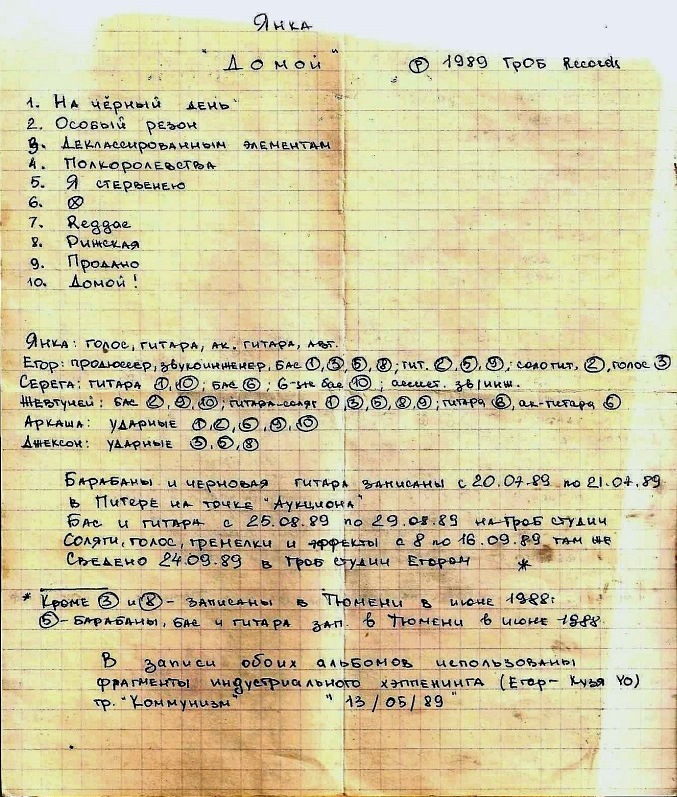 Янка
"Домой" Ⓟ 1989 ГрОБ Records
1. На чёрный день
2. Особый резон
3. Деклассированным элементам
4. Полкоролевства
5. Я стервенею
6. ⊗
7. Reggae
8. Рижская
9. Продано
10. Домой!
Янка: голос, гитара, ак. гитара, авт.
Егор: продюссер, звукоинженер, бас ①,③,⑤,⑧; гит. ②,⑤,⑨; соло гит. ②, голос ③
Серёга: гитара ①,⑩; бас ⑥; 6-ая бас ⑩; ассист. зв/инж.
Жевтуней: бас ②,⑨,⑩; гитара-соляг ①,③,⑤,⑧,⑨; гитара ⑧, ак-гитара ⑥
Аркаша: ударные ①,②,⑥,⑨,⑩
Джексон: ударные ③,⑤,⑧
Барабаны и черновая гитара записаны с 20.07.89 по 21.07.89
в Питере на точке "Аукциона"
Бас и гитара с 25.08.89 по 29.08.89 на ГрОб студии
Соляги, голос, гремелки и эффекты с 8 по 16.09.89 там же
Сведено 24.09.89 в ГрОб студии Егором *
* Кроме ③ и ⑧ - записаны в Тюмени в июне 1988:
⑤ - барабаны, бас и гитара зап. в Тюмени в июне 1988.
В записи обоих альбомов использованы
фрагменты индустриального хэппенинга (Егор - Кузя УО)
гр. "Коммунизм" "13/05/89"